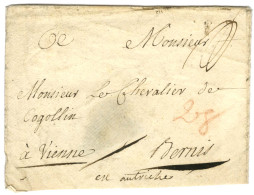 6e Monsieur
Monsieur Le Chevalier de
Cogollin
28
à Vienne Bernis
en autriche